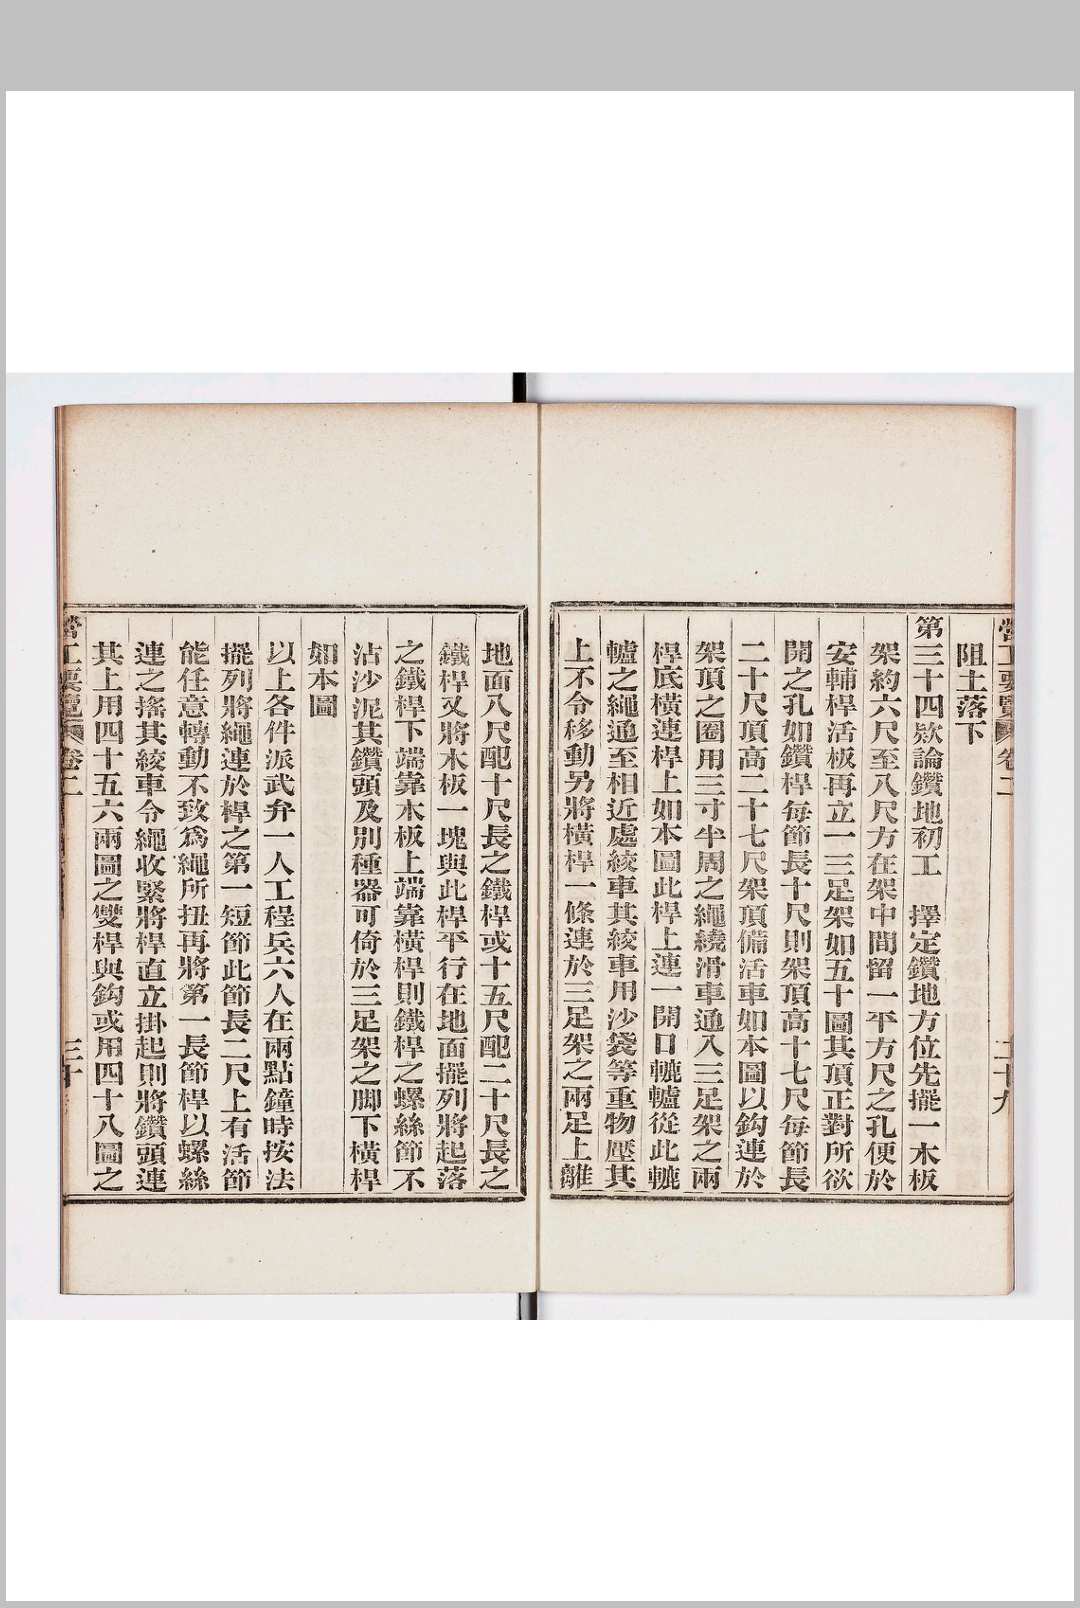 營工要覽 卷二 二十九
阻土落下
第三十四欵論鑽地初工 擇定鑽地方位先擺一木板
架約六尺至八尺方在架中間留一平方尺之孔便於
安輔桿活板再立一三足架如五十圖其頂正對所欲
開之孔如鑽桿每節長十尺則架頂高十七尺每節長
二十尺頂高二十七尺架頂備活車如本圖以鈎連於
架頂之圈用三寸半周之繩繞滑車通入三足架之兩
桿底橫連桿上如本圖此桿上連一開口轆轤從此轆
轤之繩通至相近處絞車其絞車用沙袋等重物壓其
上不令移動另將橫桿一條連於三足架之兩足上離
地面八尺配十尺長之鐵桿或十五尺配二十尺長之
鐵桿又將木板一塊與此桿平行在地面擺列將起落
之鐵桿下端靠木板上端靠橫桿則鐵桿之螺絲節不
沾沙泥其鑽頭及別種器可倚於三足架之脚下橫桿
如本圖
以上各件派武弁一人工程兵六人在兩點鐘時按法
擺列將繩連於桿之第一短節此節長二尺上有活節
能任意轉動不致爲繩所扭再將第一長節桿以螺絲
連之搖其絞車令繩收緊將桿直立掛起則將鑽頭連
其上用四十五六兩圖之雙桿與鈎或用四十八圖之
營工要覽 卷二 三十